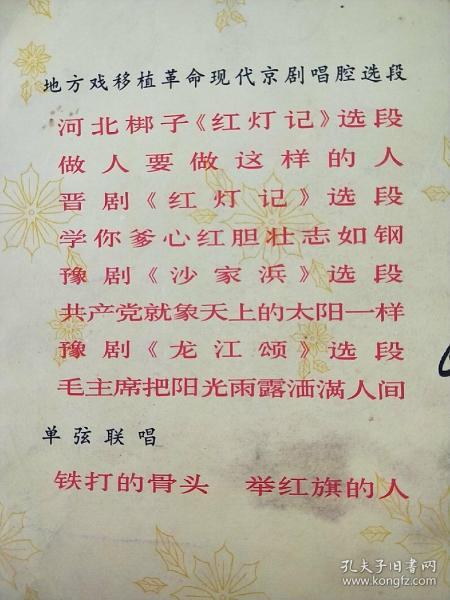 地方戏移植革命现代京剧唱腔选段
河北梆子《红灯记》选段
做人要做这样的人
晋剧《红灯记》选段
学你爹心红胆壮志如钢
豫剧《沙家浜》选段
共产党就象天上的太阳一样
豫剧《龙江颂》选段
毛主席把阳光雨露洒满人间
单弦联唱
铁打的骨头 举红旗的人
孔夫子旧书网
www.kongfz.com